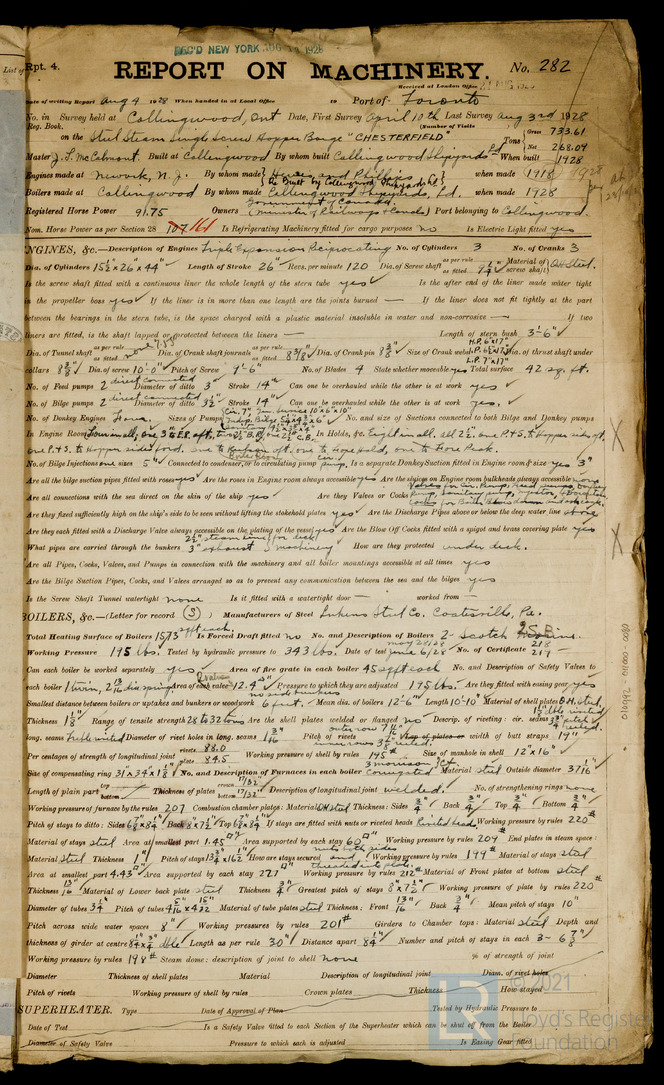 REC'D NEW YORK AUG 1928
List of
Rpt. 4.
REPORT ON MACHINERY. No. 282
Received at London Office
Date of writing Report Aug 4 1928 When handed in at Local Office 19 Port of Toronto
No. in Survey held at Collingwood, Ont Date, First Survey April 10th Last Survey Aug 3rd 1928
Reg. Book. (Number of Visits
on the Steel Steam Single Screw Hopper Barge "CHESTERFIELD" Tons Gross 733.61 Net 268.04
Master J. F. McCalmont. Built at Collingwood By whom built Collingwood Shipyards Ld When built 1928
Engines made at Newark, N. J. By whom made Hewes and Phillips when made 1918
Re Built by Collingwood Shipyards Ld 1928
Boilers made at Collingwood By whom made Collingwood Shipyards, Ld. when made 1928
Registered Horse Power 91.75 Owners Government of Canada (Minister of Railways & Canals) Port belonging to Collingwood.
Nom. Horse Power as per Section 28 107 161 Is Refrigerating Machinery fitted for cargo purposes no Is Electric Light fitted yes
ENGINES, &c.—Description of Engines Triple Expansion Reciprocating No. of Cylinders 3 No. of Cranks 3
Dia. of Cylinders 15½" x 26" x 44" Length of Stroke 26" Revs. per minute 120 Dia. of Screw shaft as per rule as fitted 7¼" Material of screw shaft O.H. Steel.
Is the screw shaft fitted with a continuous liner the whole length of the stern tube yes Is the after end of the liner made water tight
in the propeller boss yes If the liner is in more than one length are the joints burned — If the liner does not fit tightly at the part
between the bearings in the stern tube, is the space charged with a plastic material insoluble in water and non-corrosive — If two
liners are fitted, is the shaft lapped or protected between the liners — Length of stern bush 3'-6"
Dia. of Tunnel shaft as per rule as fitted none Dia. of Crank shaft journals as per rule as fitted 8 3/8" Dia. of Crank pin 8 3/8" Size of Crank webs H.P. 6"x17" I.P. 6½"x17" L.P. 7"x17" Dia. of thrust shaft under
collars 8 3/8" Dia. of screw 10'-0" Pitch of Screw 9'-6" No. of Blades 4 State whether moveable yes Total surface 42 sq. ft.
No. of Feed pumps 2 direct connected Diameter of ditto 3" Stroke 14" Can one be overhauled while the other is at work yes
No. of Bilge pumps 2 direct connected Diameter of ditto 3½" Stroke 14" Can one be overhauled while the other is at work yes.
No. of Donkey Engines Sizes of Pumps No. and size of Suctions connected to both Bilge and Donkey pumps
In Engine Room Four in all, one 3" E.R. aft, In Holds, &c. Eight in all, all 2½", one P. & S. to Hopper sides aft.
one P. & S. to Hopper sides ford, one to fore hold, one to Fore Peak.
No. of Bilge Injections one sizes 5" Connected to condenser, or to circulating pump cir. pump Is a separate Donkey Suction fitted in Engine room & size yes 3"
Are all the bilge suction pipes fitted with roses yes Are the roses in Engine room always accessible yes Are the sluices on Engine room bulkheads always accessible none
Are all connections with the sea direct on the skin of the ship yes Are they Valves or Cocks
Are they fixed sufficiently high on the ship's side to be seen without lifting the stokehold plates yes Are the Discharge Pipes above or below the deep water line above
Are they each fitted with a Discharge Valve always accessible on the plating of the vessel yes Are the Blow Off Cocks fitted with a spigot and brass covering plate yes
What pipes are carried through the bunkers 2½" steam line for deck 3" exhaust machinery How are they protected under deck.
Are all Pipes, Cocks, Valves, and Pumps in connection with the machinery and all boiler mountings accessible at all times yes
Are the Bilge Suction Pipes, Cocks, and Valves arranged so as to prevent any communication between the sea and the bilges yes
Is the Screw Shaft Tunnel watertight none Is it fitted with a watertight door — worked from —
BOILERS, &c.—(Letter for record (S)) Manufacturers of Steel Lukens Steel Co. Coatesville, Pa.
Total Heating Surface of Boilers 1573 sq ft each. Is Forced Draft fitted no No. and Description of Boilers 2 - Scotch
Working Pressure 195 lbs. Tested by hydraulic pressure to 343 lbs. Date of test May 28/28 June 6/28 No. of Certificate 218 219
Can each boiler be worked separately yes Area of fire grate in each boiler 45 sq ft each No. and Description of Safety Valves to
each boiler 1 twin, 2 13/16 dia spring Area of each valve 12.4 Pressure to which they are adjusted 175 lbs. Are they fitted with easing gear yes
Smallest distance between boilers or uptakes and bunkers or woodwork no side bunkers 6 feet. Mean dia. of boilers 12'-6" Length 10'-10" Material of shell plates O.H. steel.
Thickness 1 1/8" Range of tensile strength 28 to 32 tons Are the shell plates welded or flanged no Descrip. of riveting: cir. seams
long. seams treble riveted Diameter of rivet holes in long. seams 1 3/16" Pitch of rivets Lap of plates or width of butt straps 19"
Per centages of strength of longitudinal joint rivets 88.0 plate 84.5 Working pressure of shell by rules 195# Size of manhole in shell 12" x 16"
Size of compensating ring 31 x 34 x 1 1/8" No. and Description of Furnaces in each boiler 3 Morrison corrugated Material steel Outside diameter 37 1/16"
Length of plain part top bottom Thickness of plates crown 17/32" bottom 17/32" Description of longitudinal joint welded. No. of strengthening rings none
Working pressure of furnace by the rules 207 Combustion chamber plates: Material O.H. steel Thickness: Sides ¾" Back ¾" Top ¾" Bottom ¾"
Pitch of stays to ditto: Sides Back 8" x 7½" Top If stays are fitted with nuts or riveted heads Riveted heads Working pressure by rules 220#
Material of stays steel Area at smallest part 1.45 Area supported by each stay 60 Working pressure by rules 209# End plates in steam space:
Material Steel Thickness 1" Pitch of stays How are stays secured nuts both sides and threaded into plate. Working pressure by rules 199# Material of stays steel
Area at smallest part 4.43 Area supported by each stay 227 Working pressure by rules 212# Material of Front plates at bottom steel
Thickness 13/16" Material of Lower back plate steel Thickness ¾" Greatest pitch of stays 8" x 7½" Working pressure of plate by rules 220#
Diameter of tubes 3¼" Pitch of tubes Material of tube plates steel Thickness: Front 13/16" Back ¾" Mean pitch of stays 10"
Pitch across wide water spaces 8" Working pressures by rules 201# Girders to Chamber tops: Material steel Depth and
thickness of girder at centre dble Length as per rule 30" Distance apart 8¼" Number and pitch of stays in each 3 - 6 7/8"
Working pressure by rules 198# Steam dome: description of joint to shell none % of strength of joint
Diameter Thickness of shell plates Material Description of longitudinal joint Diam. of rivet holes
Pitch of rivets Working pressure of shell by rules Crown plates Thickness How stayed
SUPERHEATER. Type Date of Approval of Plan Tested by Hydraulic Pressure to
Date of Test Is a Safety Valve fitted to each Section of the Superheater which can be shut off from the Boiler
Diameter of Safety Valve Pressure to which each is adjusted Is Easing Gear fitted
© 2021
Lloyd's Register
Foundation